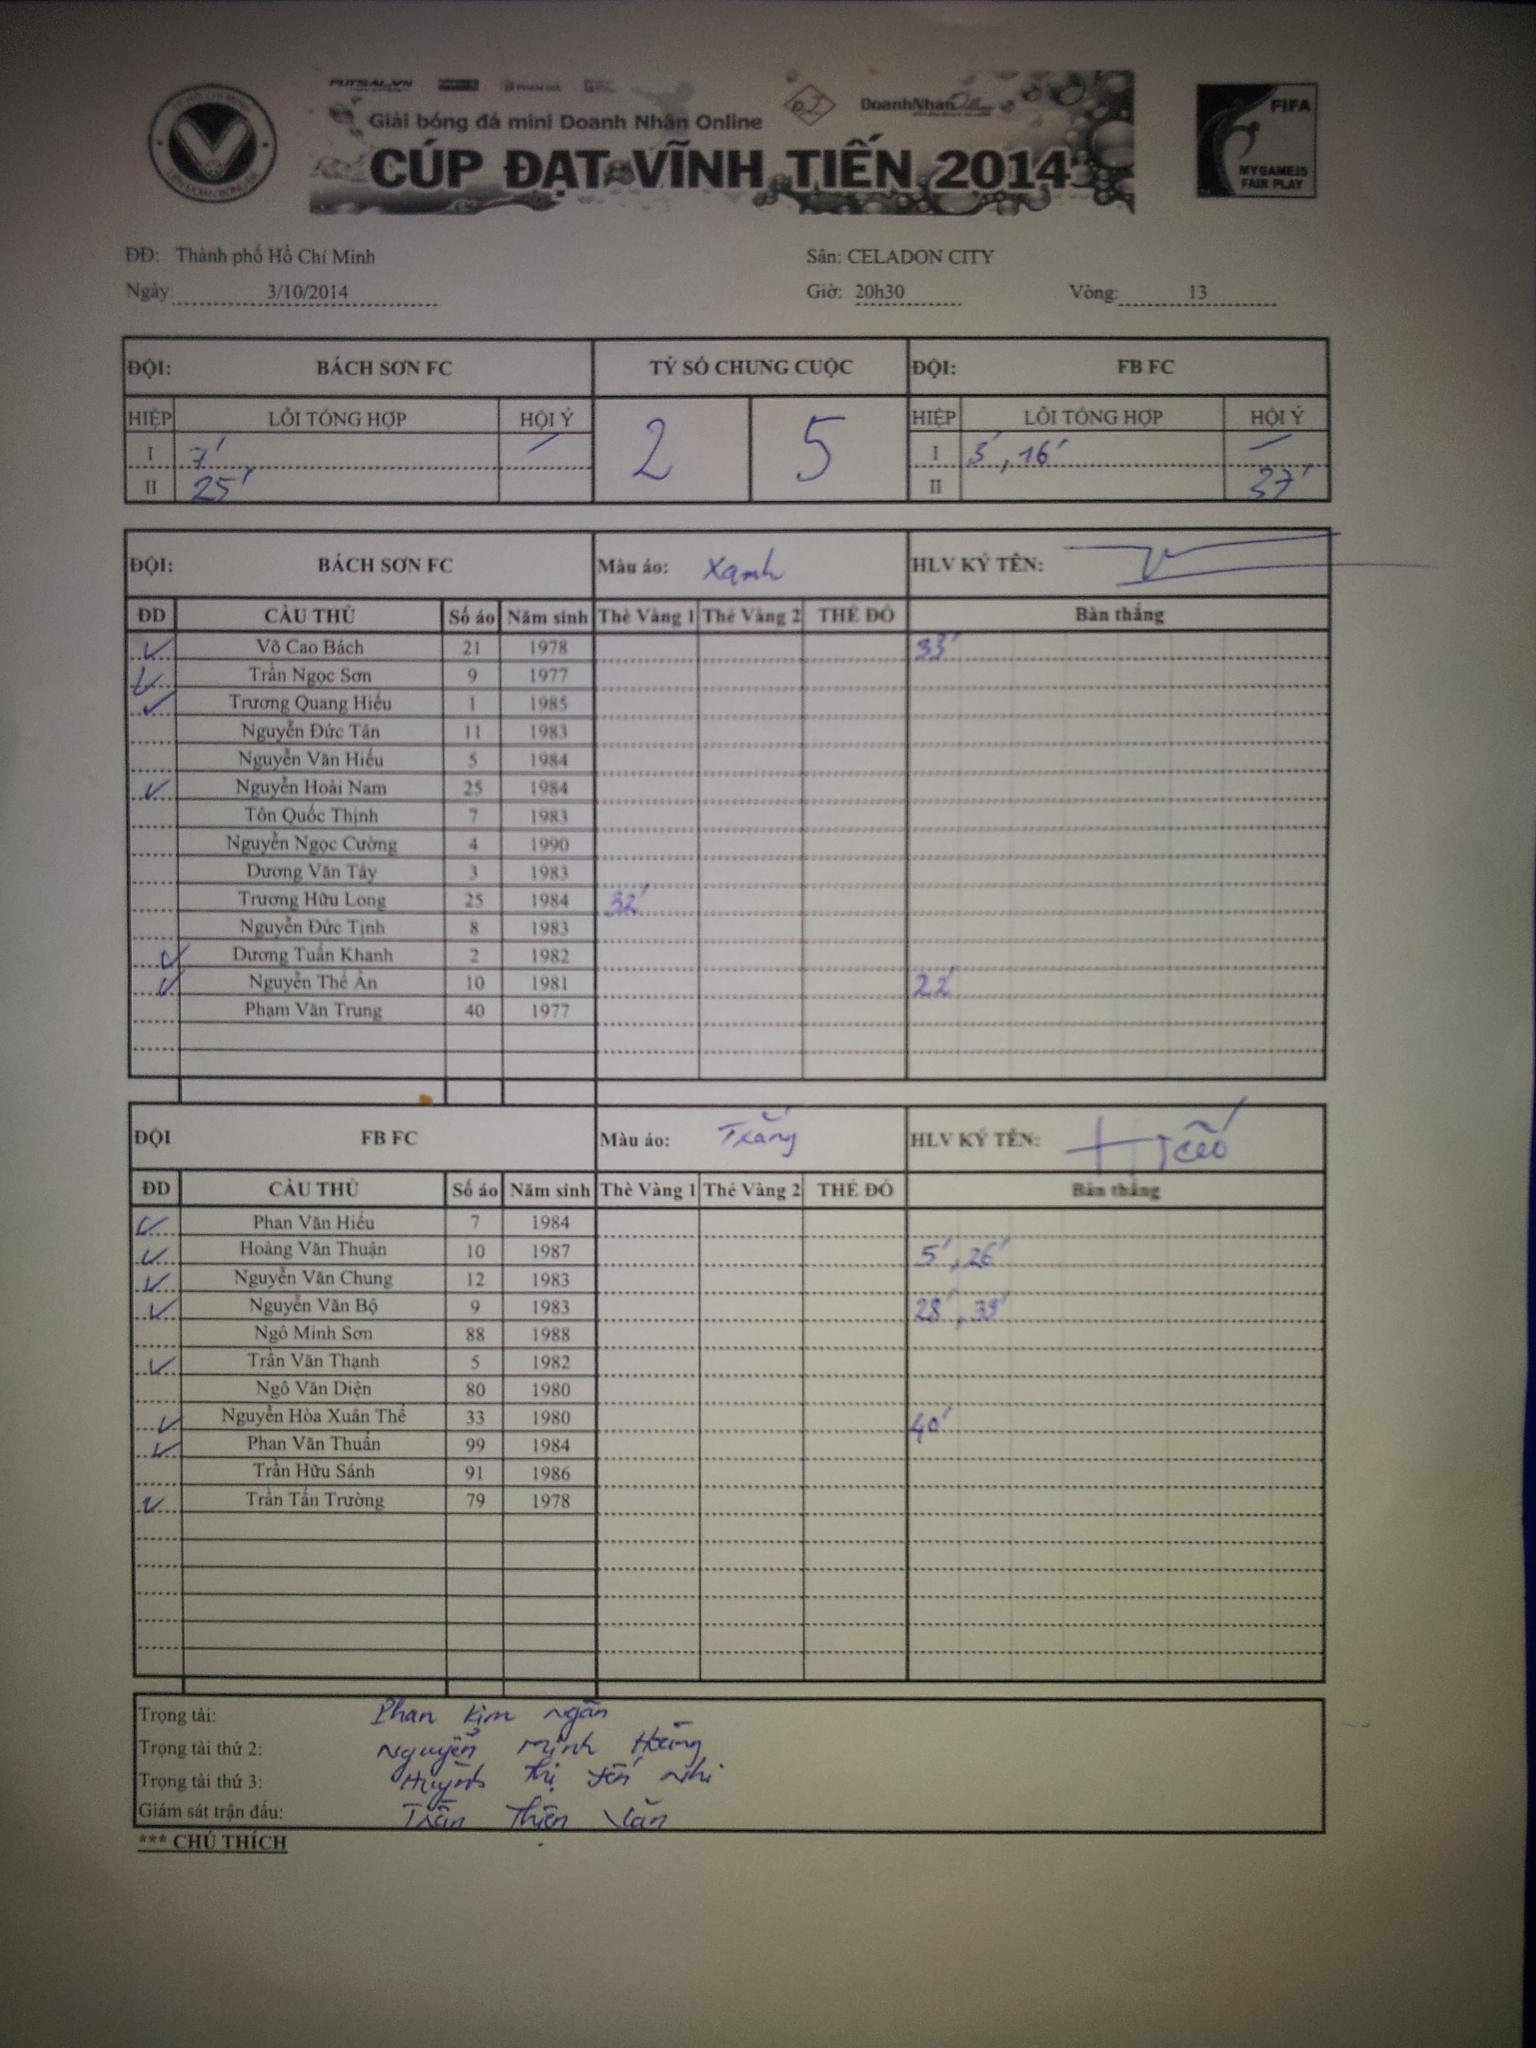 FUTSAL.VN
PHAN GIA
Giải bóng đá mini Doanh Nhân Online
DoanhNhân
CÚP ĐẠT VĨNH TIẾN 2014
TP HỒ CHÍ MINH
LIÊN ĐOÀN BÓNG ĐÁ
FIFA
MY GAME IS
FAIR PLAY
ĐĐ: Thành phố Hồ Chí Minh Sân: CELADON CITY
Ngày: 3/10/2014 Giờ: 20h30 Vòng: 13
ĐỘI: BÁCH SƠN FC TỶ SỐ CHUNG CUỘC ĐỘI: FB FC
HIỆP LỖI TỔNG HỢP HỘI Ý 2 5 HIỆP LỖI TỔNG HỢP HỘI Ý
I 7' I 3', 16'
II 25' II 37'
ĐỘI: BÁCH SƠN FC Màu áo: Xanh HLV KÝ TÊN:
ĐD CẦU THỦ Số áo Năm sinh Thẻ Vàng 1 Thẻ Vàng 2 THẺ ĐỎ Bàn thắng
Võ Cao Bách 21 1978 33'
Trần Ngọc Sơn 9 1977
Trương Quang Hiếu 1 1985
Nguyễn Đức Tân 11 1983
Nguyễn Văn Hiếu 5 1984
Nguyễn Hoài Nam 25 1984
Tôn Quốc Thịnh 7 1983
Nguyễn Ngọc Cường 4 1990
Dương Văn Tây 3 1983
Trương Hữu Long 25 1984 32'
Nguyễn Đức Tịnh 8 1983
Dương Tuấn Khanh 2 1982
Nguyễn Thế Ân 10 1981 22'
Phạm Văn Trung 40 1977
ĐỘI FB FC Màu áo: Trắng HLV KÝ TÊN: Hiếu
ĐD CẦU THỦ Số áo Năm sinh Thẻ Vàng 1 Thẻ Vàng 2 THẺ ĐỎ Bàn thắng
Phan Văn Hiếu 7 1984
Hoàng Văn Thuận 10 1987 5', 26'
Nguyễn Văn Chung 12 1983
Nguyễn Văn Bộ 9 1983 28', 39'
Ngô Minh Sơn 88 1988
Trần Văn Thạnh 5 1982
Ngô Văn Diện 80 1980
Nguyễn Hòa Xuân Thế 33 1980 40'
Phan Văn Thuấn 99 1984
Trần Hữu Sánh 91 1986
Trần Tấn Trường 79 1978
Trọng tài: Phan Kim Ngân
Trọng tài thứ 2: Nguyễn Minh Hoàng
Trọng tài thứ 3: Huỳnh Thị Yến Nhi
Giám sát trận đấu: Trần Thiện Văn
*** CHÚ THÍCH